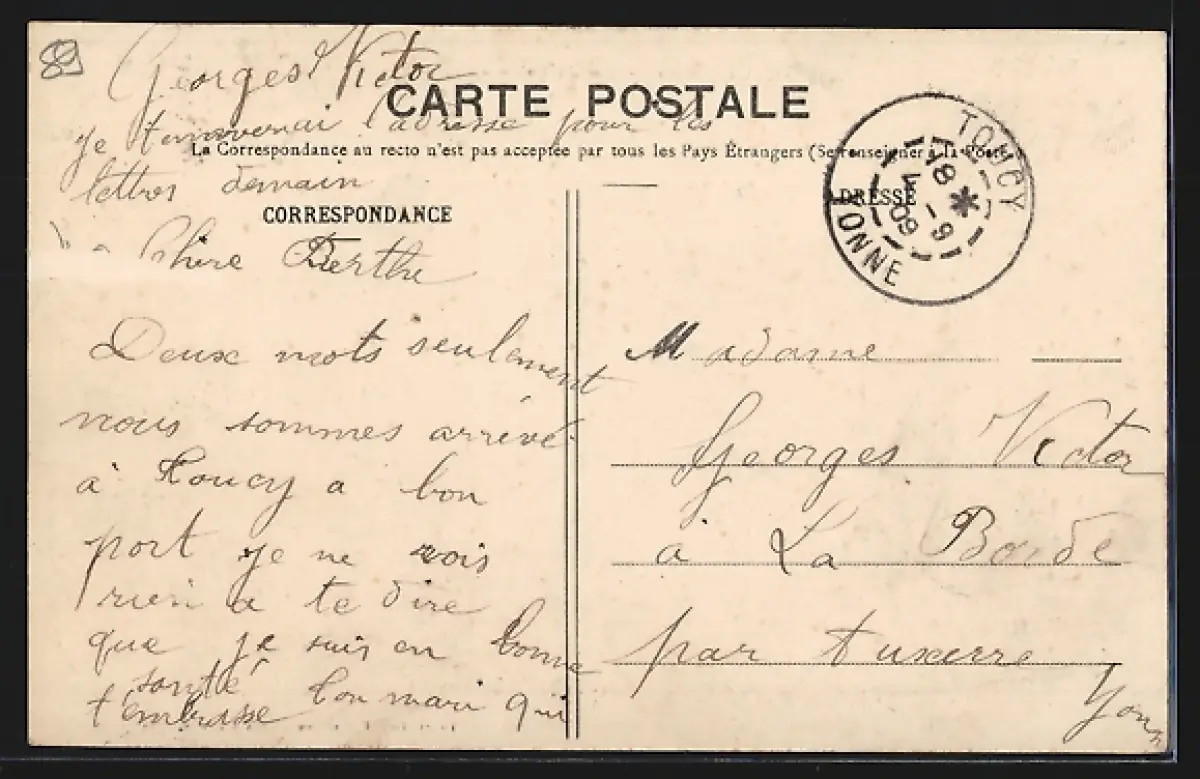 89
Georges Victor
CARTE POSTALE
Je t'enverrai l'adresse pour les
La Correspondance au recto n'est pas acceptée par tous les Pays Étrangers (Se renseigner à la Poste
lettres demain
CORRESPONDANCE
Chère Berthe
Deux mots seulement
nous sommes arrivé
à Toucy a bon
port je ne vois
rien a te dire
que je suis en bonne
santé ton mari qui
t'embrasse
ADRESSE
TOUCY
YONNE
18 *
4 - 9
09
Madame
Georges Victor
à La Borde
par Auxerre
Yonne